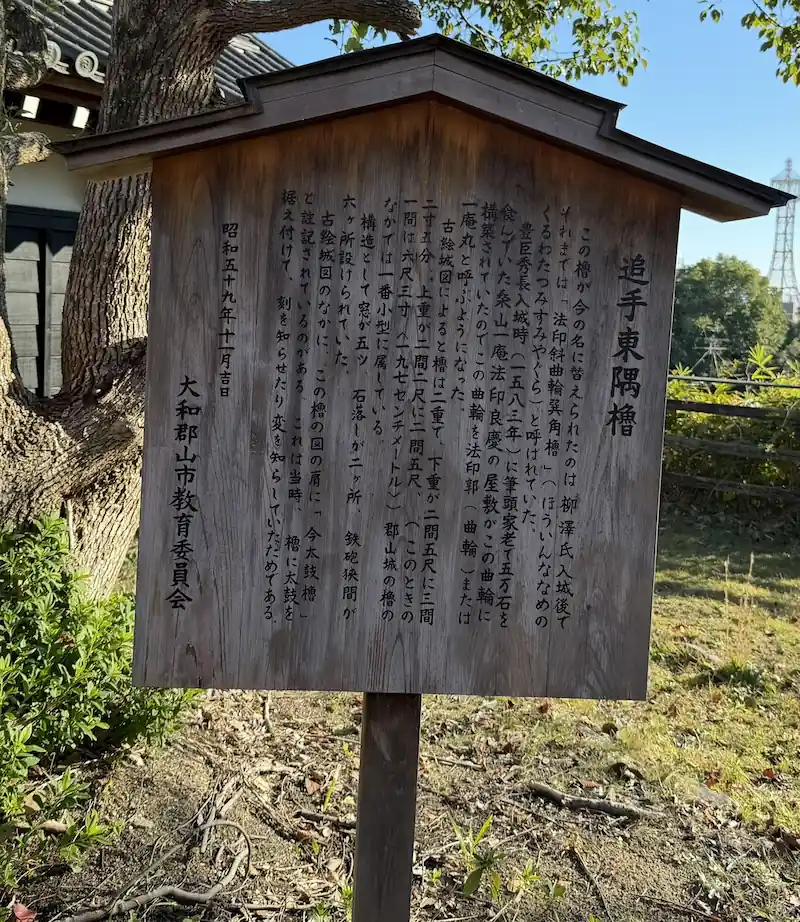 追手東隅櫓
この櫓が今の名に替えられたのは 柳澤氏入城後で
それまでは「法印斜曲輪巽角櫓」(ほういんななめの
くるわたつみすみやぐら)と呼ばれていた。
豊臣秀長入城時(一五八三年)に筆頭家老で五万石を
食んでいた桑山一庵法印良慶の屋敷がこの曲輪に
構築されていたのでこの曲輪を法印郭(曲輪)または
一庵丸と呼ぶようになった。
古絵城図によると櫓は二重で 下重が二間五尺に三間
二寸五分、上重が二間一尺に二間五尺、(このときの
一間は六尺三寸〈一九七センチメートル〉)郡山城の櫓の
なかでは一番小型に属している。
構造として窓が五ツ 石落しが二ヶ所、鉄砲狭間が
六ヶ所設けられていた。
古絵城図のなかに、この櫓の図の肩に「今太鼓櫓」
と註記されているのがある、これは当時、櫓に太鼓を
据え付けて、刻を知らせたり変を知らしていたためである。
昭和五十九年十一月吉日
大和郡山市教育委員会